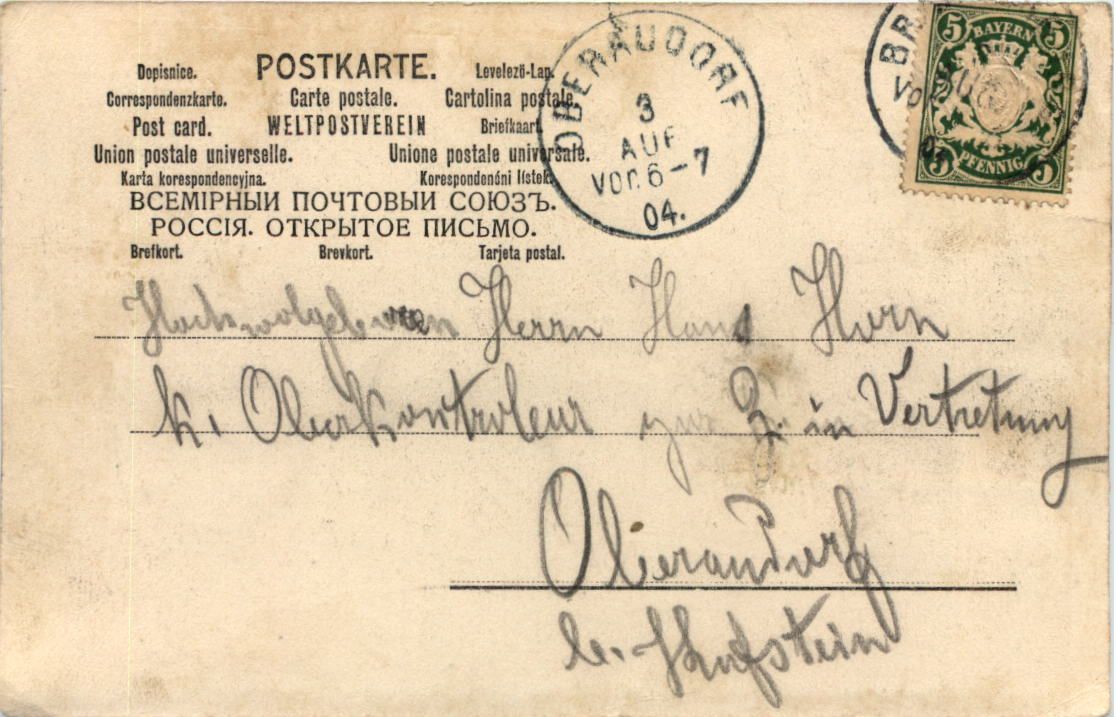 POSTKARTE.
Dopisnice. Levelező-Lap.
Correspondenzkarte. Carte postale. Cartolina postale.
Post card. WELTPOSTVEREIN Briefkaart.
Union postale universelle. Unione postale universale.
Karta korespondencyjna. Korespondenční lístek.
ВСЕМІРНЫИ ПОЧТОВЫИ СОЮЗЪ.
РОССІЯ. ОТКРЫТОЕ ПИСЬМО.
Brefkort. Brevkort. Tarjeta postal.
OBERAUDORF
3
AUG
Vor. 6-7
04.
5 BAYERN 5
5 PFENNIG 5
Hochwolgeboren Herrn Hans Horn
k. Oberkontroleur zur Z. in Vertretung
Oberaudorf
b. Kufstein